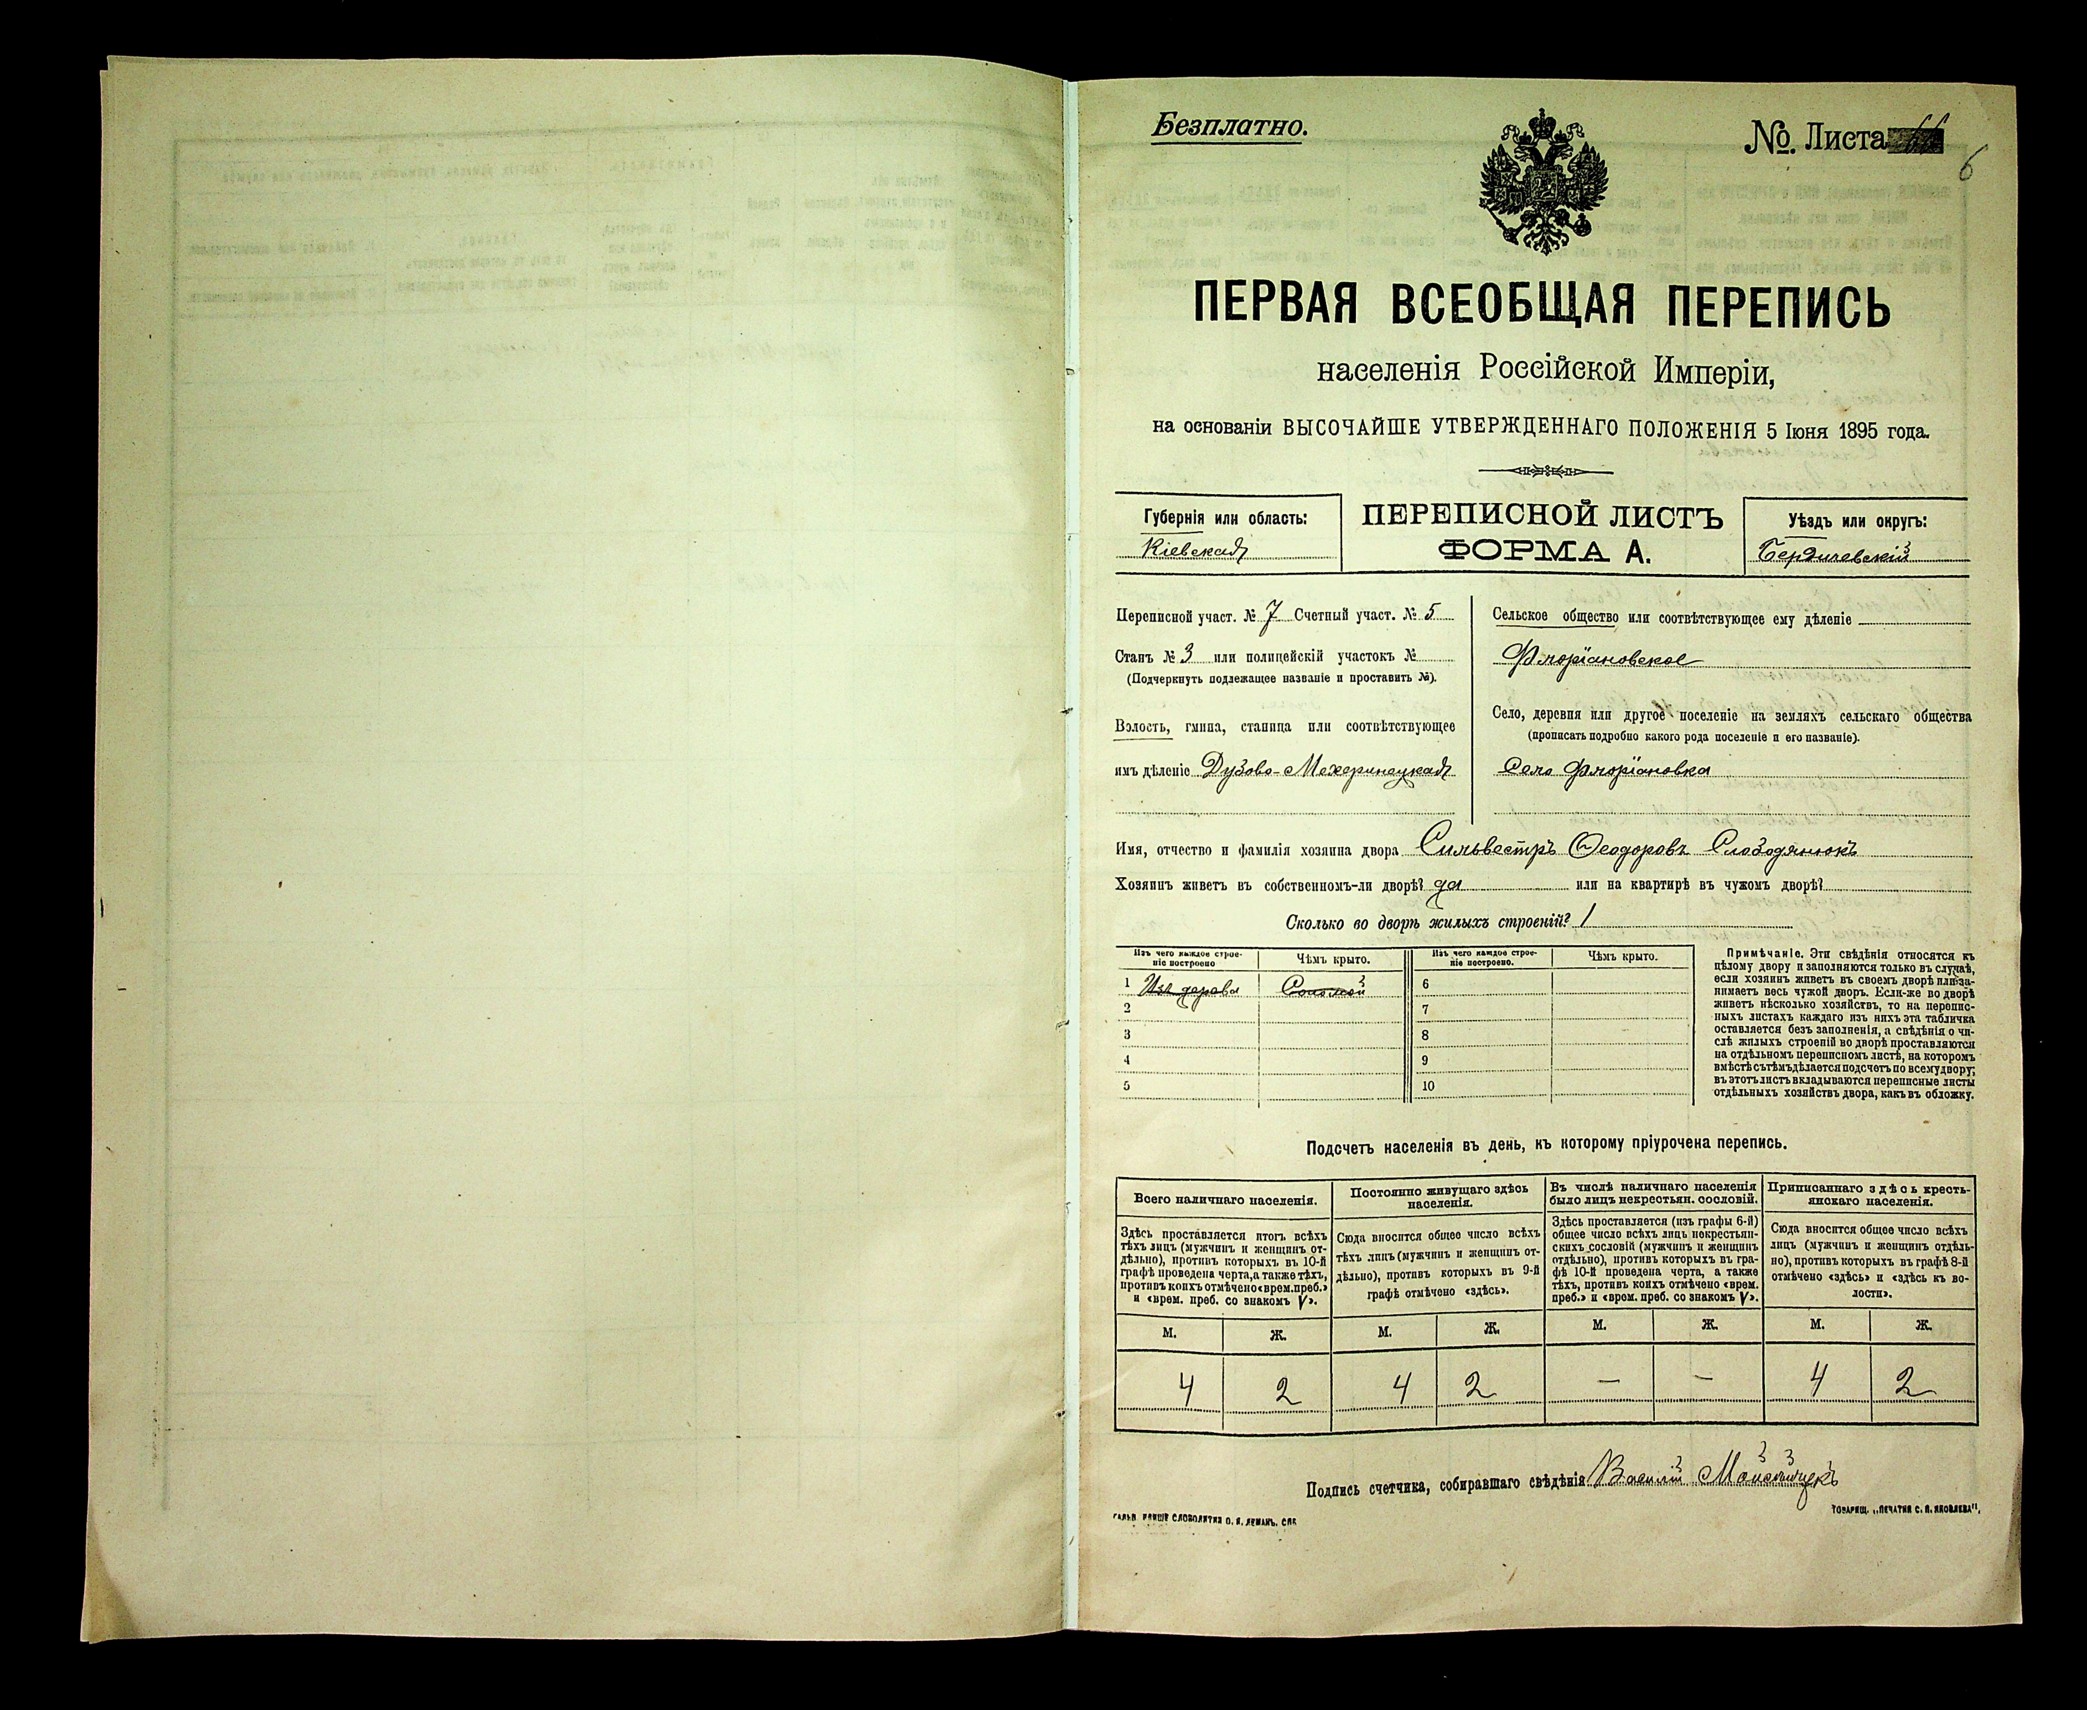 Безплатно.
№. Листа
6
ПЕРВАЯ ВСЕОБЩАЯ ПЕРЕПИСЬ
населенія Россійской Имперіи,
на основаніи ВЫСОЧАЙШЕ УТВЕРЖДЕННАГО ПОЛОЖЕНІЯ 5 Іюня 1895 года.
Губернія или область:
Кіевская
ПЕРЕПИСНОЙ ЛИСТЪ
ФОРМА А.
Уѣздъ или округъ:
Бердичевскій
Переписной участ. № 7 Счетный участ. № 5
Станъ № 3 или полицейскій участокъ №
(Подчеркнуть подлежащее названіе и проставить №).
Волость, гмина, станица или соотвѣтствующее
имъ дѣленіе Дзюво-Махеринецкая
Сельское общество или соотвѣтствующее ему дѣленіе
Флоріановское
Село, деревня или другое поселеніе на земляхъ сельскаго общества
(прописать подробно какого рода поселеніе и его названіе).
Село Флоріановка
Имя, отчество и фамилія хозяина двора Сильвестръ Ѳеодоровъ Слободянюкъ
Хозяинъ живетъ въ собственномъ-ли дворѣ? да или на квартирѣ въ чужомъ дворѣ?
Сколько во дворѣ жилыхъ строеній? 1
Изъ чего каждое строе-
ніе построено
Чѣмъ крыто.
Изъ чего каждое строе-
ніе построено.
Чѣмъ крыто.
1 Изъ дерева Соломой 6
2 7
3 8
4 9
5 10
Примѣчаніе. Эти свѣдѣнія относятся къ
цѣлому двору и заполняются только въ случаѣ,
если хозяинъ живетъ въ своемъ дворѣ или за-
нимаетъ весь чужой дворъ. Если-же во дворѣ
живетъ нѣсколько хозяйствъ, то на перепис-
ныхъ листахъ каждаго изъ нихъ эта табличка
оставляется безъ заполненія, а свѣдѣнія о чи-
слѣ жилыхъ строеній во дворѣ проставляются
на отдѣльномъ переписномъ листѣ, на которомъ
вмѣстѣ съ тѣмъ дѣлается подсчетъ по всему двору;
въ этотъ листъ вкладываются переписные листы
отдѣльныхъ хозяйствъ двора, какъ въ обложку.
Подсчетъ населенія въ день, къ которому пріурочена перепись.
Всего наличнаго населенія.
Здѣсь проставляется итогъ всѣхъ
тѣхъ лицъ (мужчинъ и женщинъ от-
дѣльно), противъ которыхъ въ 10-й
графѣ проведена черта, а также тѣхъ,
противъ коихъ отмѣчено «врем. преб.»
и «врем. преб. со знакомъ V».
Постоянно живущаго здѣсь
населенія.
Сюда вносится общее число всѣхъ
тѣхъ лицъ (мужчинъ и женщинъ от-
дѣльно), противъ которыхъ въ 9-й
графѣ отмѣчено «здѣсь».
Въ числѣ наличнаго населенія
было лицъ некрестьян. сословій.
Здѣсь проставляется (изъ графы 6-й)
общее число всѣхъ лицъ некрестьян-
скихъ сословій (мужчинъ и женщинъ
отдѣльно), противъ которыхъ въ гра-
фѣ 10-й проведена черта, а также
тѣхъ, противъ коихъ отмѣчено «врем.
преб.» и «врем. преб. со знакомъ V».
Приписаннаго здѣсь кресть-
янскаго населенія.
Сюда вносится общее число всѣхъ
лицъ (мужчинъ и женщинъ отдѣль-
но), противъ которыхъ въ графѣ 8-й
отмѣчено «здѣсь» и «здѣсь къ во-
лости».
М. Ж. М. Ж. М. Ж. М. Ж.
4 2 4 2 – – 4 2
Подпись счетчика, собиравшаго свѣдѣнія Василій
СЛОВОЛИТНИ О. И. ЛЕМАНЪ. СПБ
ТОВАРИЩ. „ПЕЧАТНЯ С. П. ЯКОВЛЕВА".